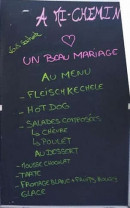 A MI-CHEMIN
UN BEAU MARIAGE
AU MENU
- FLEISCHKECHELE
- HOT DOG
- SALADES COMPOSÉES
LA CHÈVRE
LA POULET
AU DESSERT
- MOUSSE CHOCOLAT
- TARTE
- FROMAGE BLANC + FRUITS ROUGES
GLACE